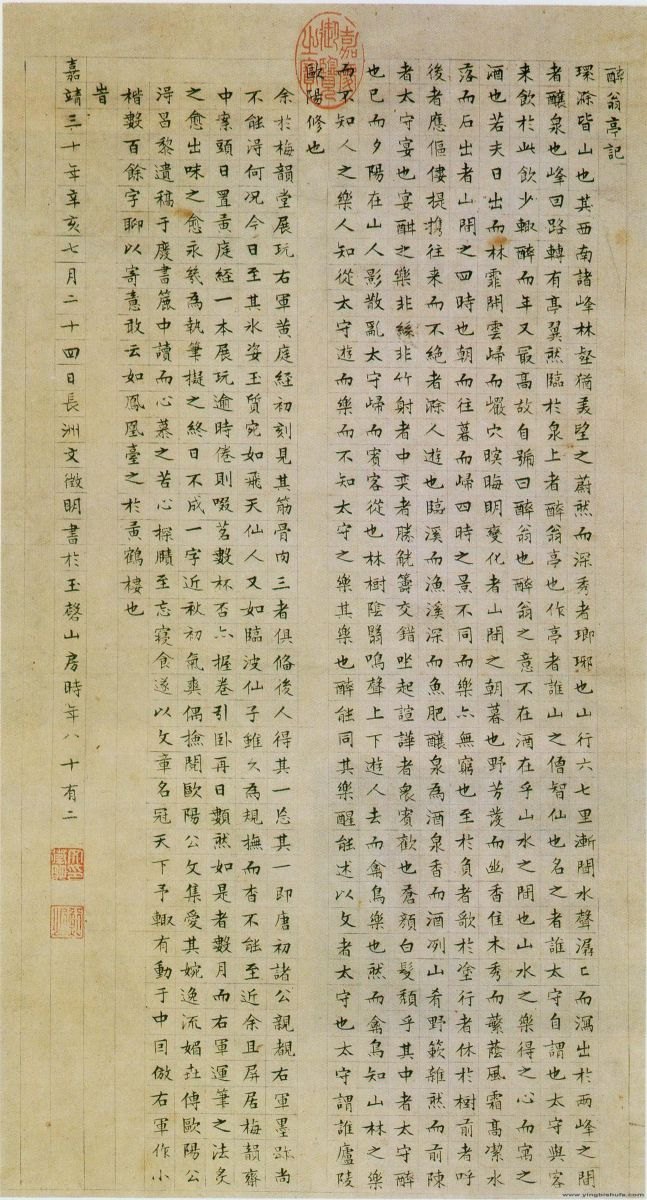 醉翁亭記
環滁皆山也其西南諸峰林壑猶美望之蔚然而深秀者瑯琊也山行六七里漸聞水聲潺〻而瀉出於兩峰之間
者釀泉也峰回路轉有亭翼然臨於泉上者醉翁亭也作亭者誰山之僧智仙也名之者誰太守自謂也太守與客
来飲於此飲少輒醉而年又最高故自號曰醉翁也醉翁之意不在酒在乎山水之間也山水之樂得之心而寓之
酒也若夫日出而林霏開雲歸而巖穴暝晦明變化者山間之朝暮也野芳發而幽香佳木秀而繁蔭風霜高潔水
落而石出者山間之四時也朝而往暮而歸四時之景不同而樂亦無窮也至於負者歌於塗行者休於樹前者呼
後者應傴僂提攜往来而不絕者滁人遊也臨溪而漁溪深而魚肥釀泉為酒泉香而酒冽山肴野蔌雜然而前陳
者太守宴也宴酣之樂非絲非竹射者中奕者勝觥籌交錯坐起諠譁者衆賓歡也蒼顏白髮頹乎其中者太守醉
也已而夕陽在山人影散亂太守歸而賓客從也林樹陰翳鳴聲上下遊人去而禽鳥樂也然而禽鳥知山林之樂
而不知人之樂人知從太守遊而樂而不知太守之樂其樂也醉能同其樂醒能述以文者太守也太守謂誰廬陵
歐陽修也
余於梅韻堂展玩右軍黄庭經初刻見其筋骨肉三者俱俻後人得其一忘其一即唐初諸公親覩右軍墨跡尚
不能淂何况今日至其氷姿玉質宛如飛天仙人又如臨波仙子雖久為規撫而杳不能至近余且屏居梅韻齋
中案頭日置黄庭經一本展玩逾時倦則啜茗數杯否亦握卷引卧再日顙然如是者數月而右軍運筆之法炙
之愈出味之愈永終為執筆擬之終日不成一字近秋初氣爽偶撿閱歐陽公文集愛其婉逸流媚世傳歐陽公
淂昌黎遺稿于廢書簏中讀而心慕之苦心探賾至忘寝食遂以文章名冠天下予輒有動于中因倣右軍作小
楷數百餘字聊以寄意敢云如鳳凰臺之於黄鶴樓也
旹
嘉靖三十年辛亥七月二十四日長洲文徵明書於玉磬山房時年八十有二
www.yingbishufa.com